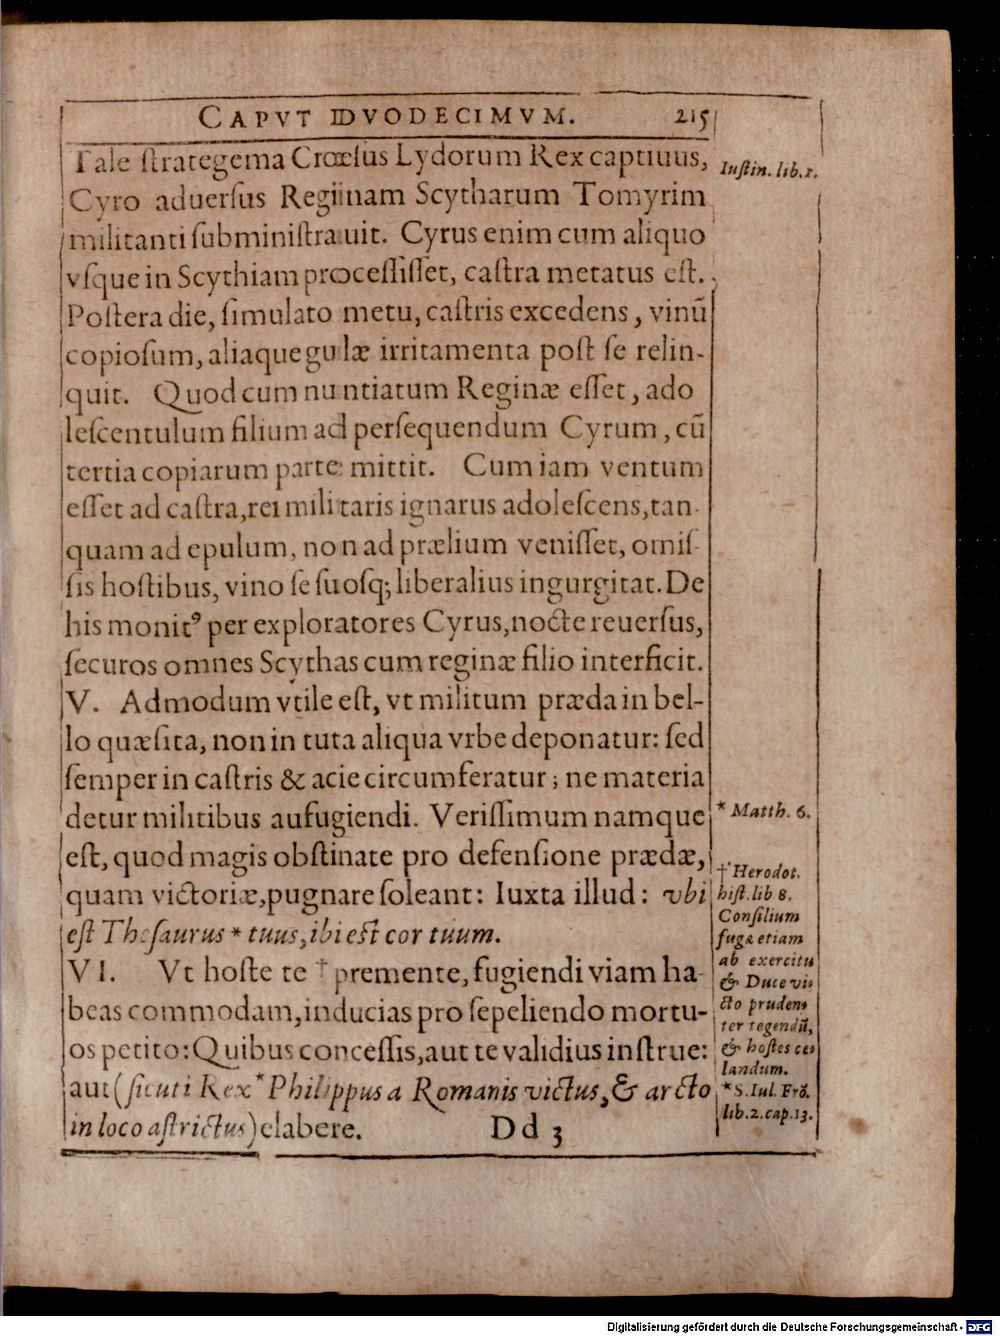 CAPVT DVODECIMVM. 215
Tale ſtrategema Crœſus Lydorum Rex captiuus,
Cyro aduerſus Reginam Scytharum Tomyrim
militanti ſubminiſtrauit. Cyrus enim cum aliquo
vſque in Scythiam proceſſiſſet, caſtra metatus eſt.
Poſtera die, ſimulato metu, caſtris excedens, vinũ
copioſum, aliaque gulæ irritamenta poſt ſe relin-
quit. Quod cum nuntiatum Reginæ eſſet, ado
leſcentulum filium ad perſequendum Cyrum, cũ
tertia copiarum parte mittit. Cum iam ventum
eſſet ad caſtra, rei militaris ignarus adoleſcens, tan-
quam ad epulum, non ad prælium veniſſet, omiſ-
ſis hoſtibus, vino ſe ſuoſq; liberalius ingurgitat. De
his monitꝰ per exploratores Cyrus, nocte reuerſus,
ſecuros omnes Scythas cum reginæ filio interficit.
V. Admodum vtile eſt, vt militum præda in bel-
lo quæſita, non in tuta aliqua vrbe deponatur: ſed
ſemper in caſtris & acie circumferatur; ne materia
detur militibus aufugiendi. Veriſſimum namque
eſt, quod magis obſtinate pro defenſione prædæ,
quam victoriæ, pugnare ſoleant: Iuxta illud: vbi
eſt Theſaurus * tuus, ibi eſt cor tuum.
VI. Vt hoſte te † premente, fugiendi viam ha-
beas commodam, inducias pro ſepeliendo mortu-
os petito: Quibus conceſſis, aut te validius inſtrue:
aut (ſicuti Rex * Philippus a Romanis victus, & arcto
in loco aſtrictus) elabere. Dd 3
Iuſtin. lib. 1.
* Matth. 6.
† Herodot.
hiſt. lib 8.
Conſilium
fugæ etiam
ab exercitu
& Duce vi-
cto pruden-
ter tegendũ,
& hoſtes ce-
landum.
* S. Iul. Frõ.
lib. 2. cap. 13.
Digitalisierung gefördert durch die Deutsche Forschungsgemeinschaft - DFG